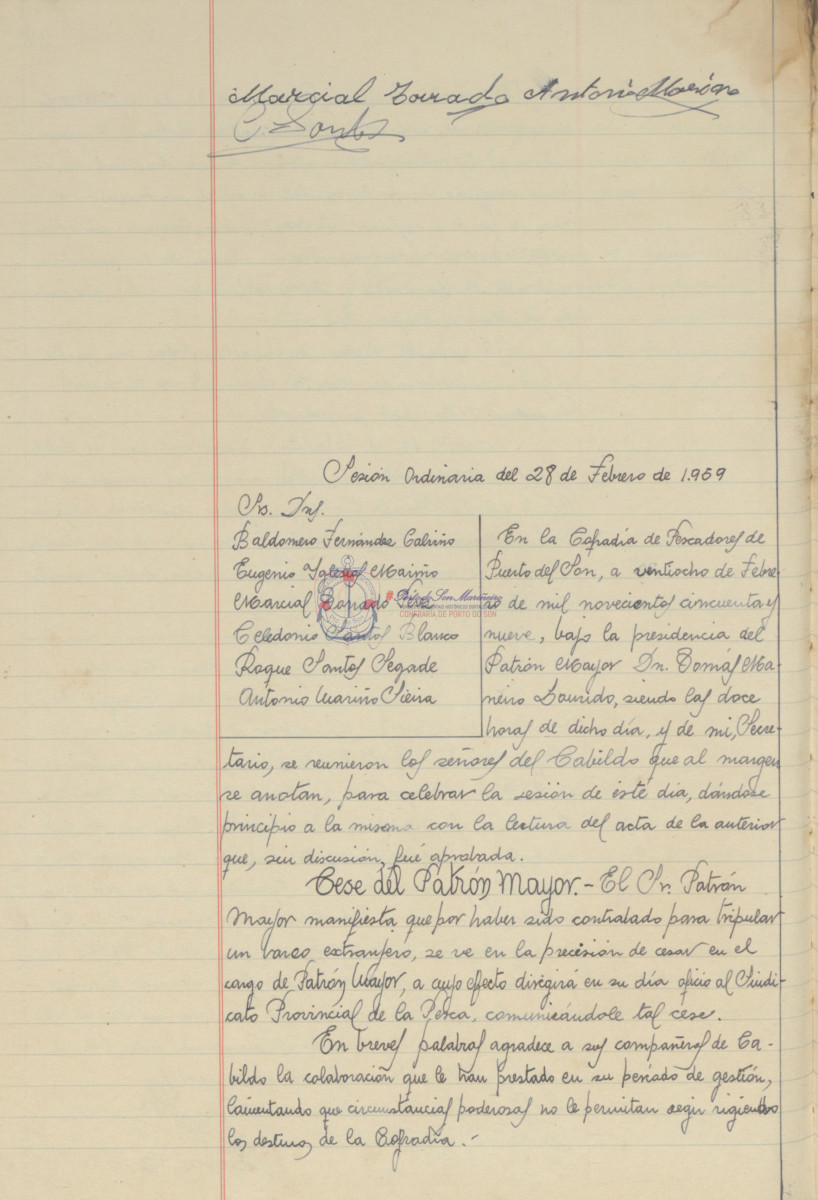 Marcial Torrado Antonio Mariño
C Santos
Sesión Ordinaria del 28 de Febrero de 1.959
Sr. Dns.
Baldomero Fernández Calviño
Eugenio Iglesias Mariño
Marcial Torrado
Celedonio Santos Blanco
Roque Santos Segade
Antonio Mariño Sieira
En la Cofradía de Pescadores de
Puerto del Son, a ventiocho de Febre-
ro de mil novecientos cincuenta y
nueve, bajo la presidencia del
Patrón Mayor Dn. Tomás Ma-
neiro Lourido, siendo las doce
horas de dicho día, y de mi, Secre-
tario, se reunieron los señores del Cabildo que al margen
se anotan, para celebrar la sesión de éste dia, dándose
principio a la misma con la lectura del acta de la anterior
que, sin discusión, fué aprobada.
Cese del Patrón Mayor.- El Sr. Patrón
Mayor manifiesta que por haber sido contratado para tripular
un barco extranjero, se ve en la precisión de cesar en el
cargo de Patrón Mayor, a cuyo efecto dirigirá en su día oficio al Sindi-
cato Provincial de la Pesca, comunicándole tal cese.
En breves palabras agradece a sus compañeros de Ca-
bildo la colaboración que le han prestado en su periodo de gestión,
lamentando que circunstancias poderosas no le permitan segir rigiendo
los destinos de la Cofradía.-
Porto do Son Mariñeiro
CONFRARÍA DE PORTO DO SON